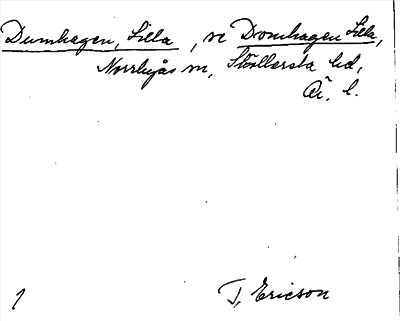 Dumhagen, Lilla, se Domhagen Lilla,
Norrbyås sn, Sköllersta hd,
Ö. l.
1 T. Ericson